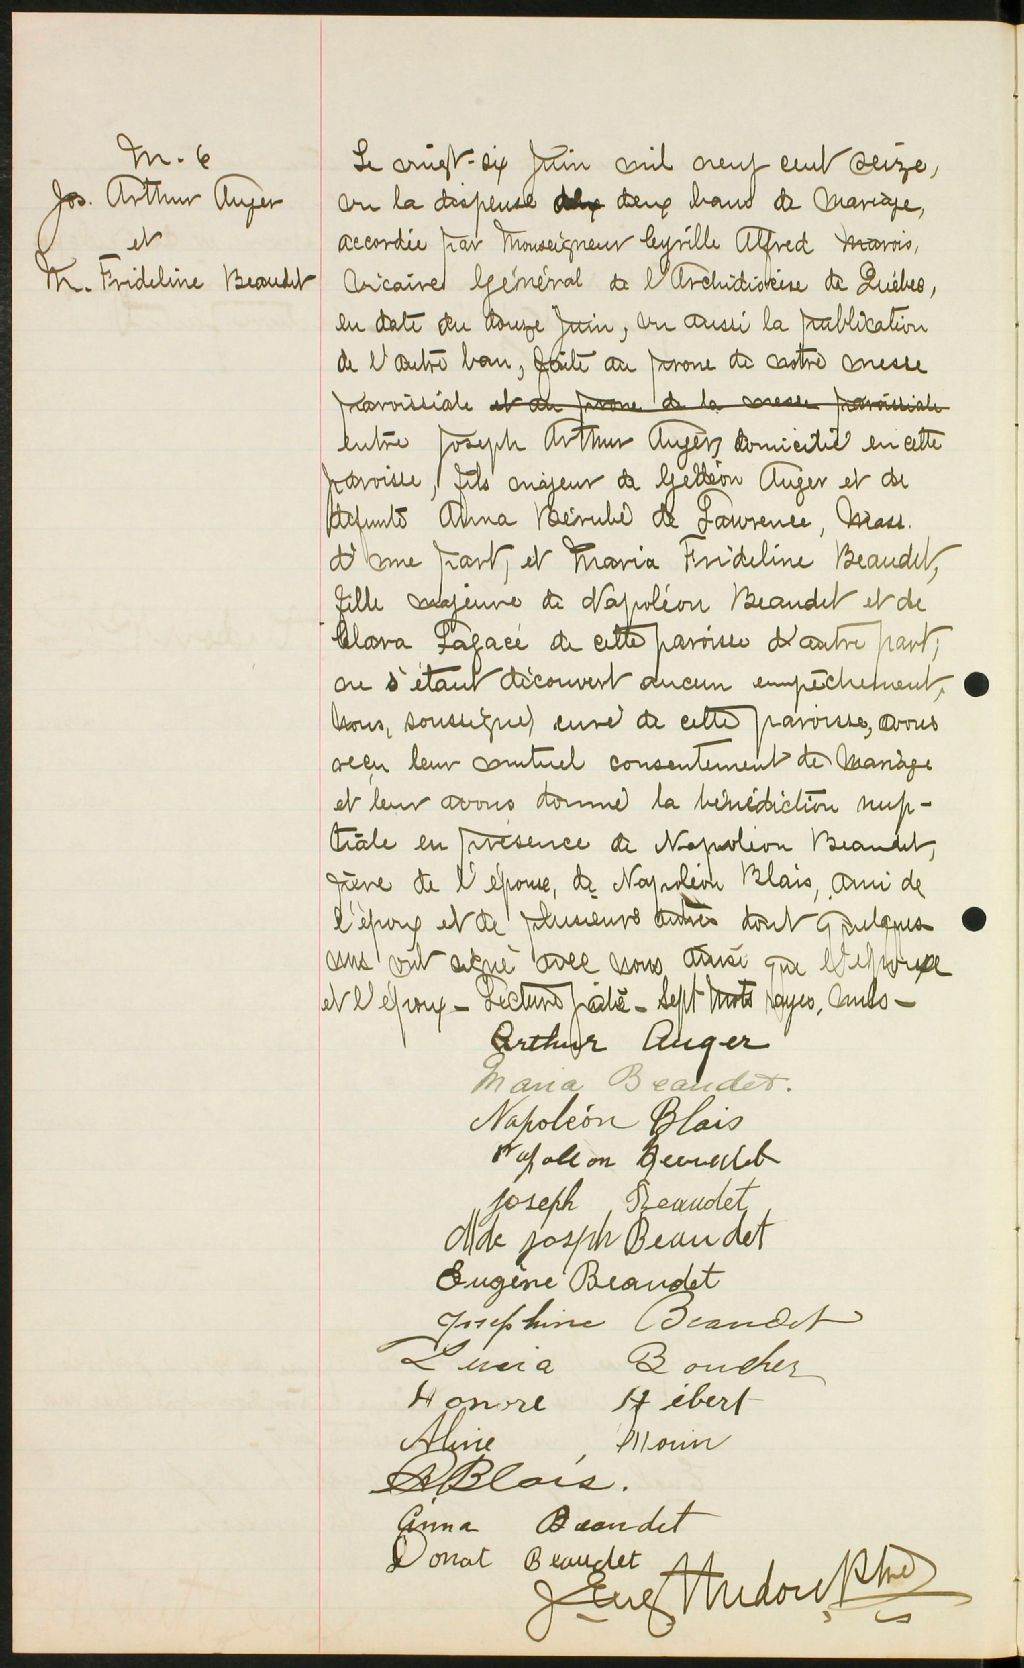 M. 6
Jos. Arthur Auger
et
M. Frideline Beaudet
Le vingt-six Juin mil neuf cent seize,
vu la dispense deux bans de mariage,
accordée par Monseigneur Cyrille Alfred Marois,
Vicaire Général de l'Archidiocèse de Québec,
en date du douze Juin, vu aussi la publication
de l'autre ban, faite au prone de notre messe
paroissiale et au prone de la messe paroissiale
entre Joseph Arthur Auger, domicilié en cette
paroisse, fils majeur de Gédéon Auger et de
défunte Anna Bérubé de Lawrence, Mass.
d'une part, et Maria Frideline Beaudet,
fille majeure de Napoléon Beaudet et de
Clara Lagacé de cette paroisse d'autre part,
ne s'étant découvert aucun empêchement,
Nous, soussigné, curé de cette paroisse, avons
reçu leur mutuel consentement de Mariage
et leur avons donné la bénédiction nup-
tiale en présence de Napoléon Beaudet,
père de l'épouse, de Napoléon Blais, ami de
l'époux et de plusieurs autres dont quelques
uns ont signé avec nous ainsi que l'épouse
et l'époux - Lecture faite - Sept mots rayés, nuls -
Arthur Auger
Maria Beaudet.
Napoléon Blais
Napoleon Beaudet
Joseph Beaudet
Mde Joseph Beaudet
Eugène Beaudet
Josephine Beaudet
Lucia Boucher
Honoré Hébert
Aline Morin
Blais.
Anna Beaudet
Donat Beaudet
J. Eug. Hudon Ptre